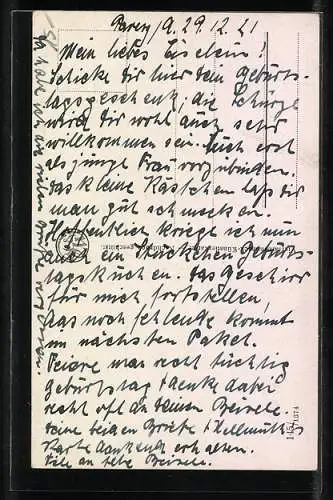 Parey, 9.29.12.21
Mein liebes Liselein!
Schicke dir hier dein Geburts-
tagsgeschenk, die Schürze
wird dir wohl auch sehr
willkommen sein. Auch erst
als junge Frau vorzubinden.
das kleine Kästchen lass dir
man gut schmecken.
Hoffentlich kriege ich nun
auch ein Stückchen Geburts-
tagskuchen. das Geschirr
für mich fortstellen,
das noch fehlende kommt
im nächsten Paket.
Feiere man recht tüchtig
Geburtstag + denke dabei
recht oft an deinen
deine beiden Briefe + Hellmuths
Karte dankend erhalten.
1157/1374